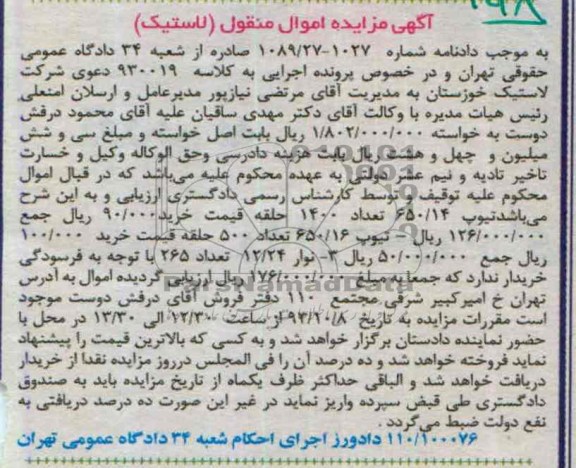 آگهی مزایده اموال منقول (لاستیک)
به موجب دادنامه شماره ۱۰۲۷-۱۰۸۹/۲۷ صادره از شعبه ۳۴ دادگاه عمومی
حقوقی تهران و در خصوص پرونده اجرایی به کلاسه ۹۳۰۰۱۹ دعوی شرکت
لاستیک خوزستان به مدیریت آقای مرتضی نیازپور مدیرعامل و ارسلان امنعلی
رئیس هیات مدیره با وکالت آقای دکتر مهدی ساقیان علیه آقای محمود درفش
دوست به خواسته ۱/۸۰۲/۰۰۰/۰۰۰ ریال بابت اصل خواسته و مبلغ سی و شش
میلیون و چهل و هشت ریال بابت هزینه دادرسی وحق الوکاله وکیل و خسارت
تاخیر تادیه و نیم عشر دولتی به عهده محکوم علیه می‌باشد که در قبال اموال
محکوم علیه توقیف و توسط کارشناس رسمی دادگستری ارزیابی و به این شرح
می‌باشدتیوپ ۶۵۰/۱۴ تعداد ۱۴۰۰ حلقه قیمت خرید۹۰/۰۰۰ ریال جمع
۱۲۶/۰۰۰/۰۰۰ ریال - تیوپ ۶۵۰/۱۶ تعداد ۵۰۰ حلقه قیمت خرید ۱۰۰/۰۰۰
ریال جمع ۵۰/۰۰۰/۰۰۰ ریال ۳-نوار ۱۲/۲۴ تعداد ۲۶۵ با توجه به فرسودگی
خریدار ندارد که جمعا به مبلغ ۱۷۶/۰۰۰/۰۰۰ ریال ارزیابی گردیده اموال به آدرس
تهران خ امیرکبیر شرقی مجتمع ۱۱۰ دفتر فروش آقای درفش دوست موجود
است مقررات مزایده به تاریخ ۹۳/۱۰/۸ از ساعت ۱۲/۳۰ الی ۱۳/۳۰ در محل با
حضور نماینده دادستان برگزار خواهد شد و به کسی که بالاترین قیمت را پیشنهاد
نماید فروخته خواهد شد و ده درصد آن را فی المجلس درروز مزایده نقدا از خریدار
دریافت خواهد شد و الباقی حداکثر ظرف یکماه از تاریخ مزایده باید به صندوق
دادگستری طی قبض سپرده واریز نماید در غیر این صورت ده درصد دریافتی به
نفع دولت ضبط می‌گردد.
۱۱۰/۱۰۰۰۷۶ دادورز اجرای احکام شعبه ۳۴ دادگاه عمومی تهران
ParsNamadData